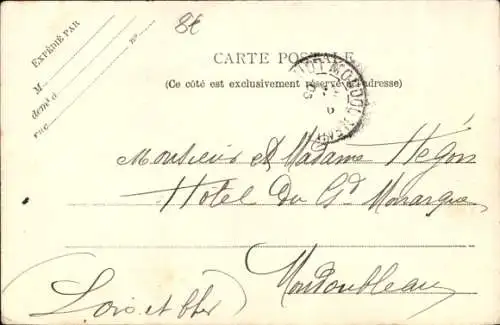 8c
EXPÉDIÉ PAR
M
demt à
rue nº
CARTE POSTALE
(Ce côté est exclusivement réservé à l'adresse)
Monsieur et Madame Hégon
Hotel du Gd Monarque
Mondoubleau
(Loir et Cher)